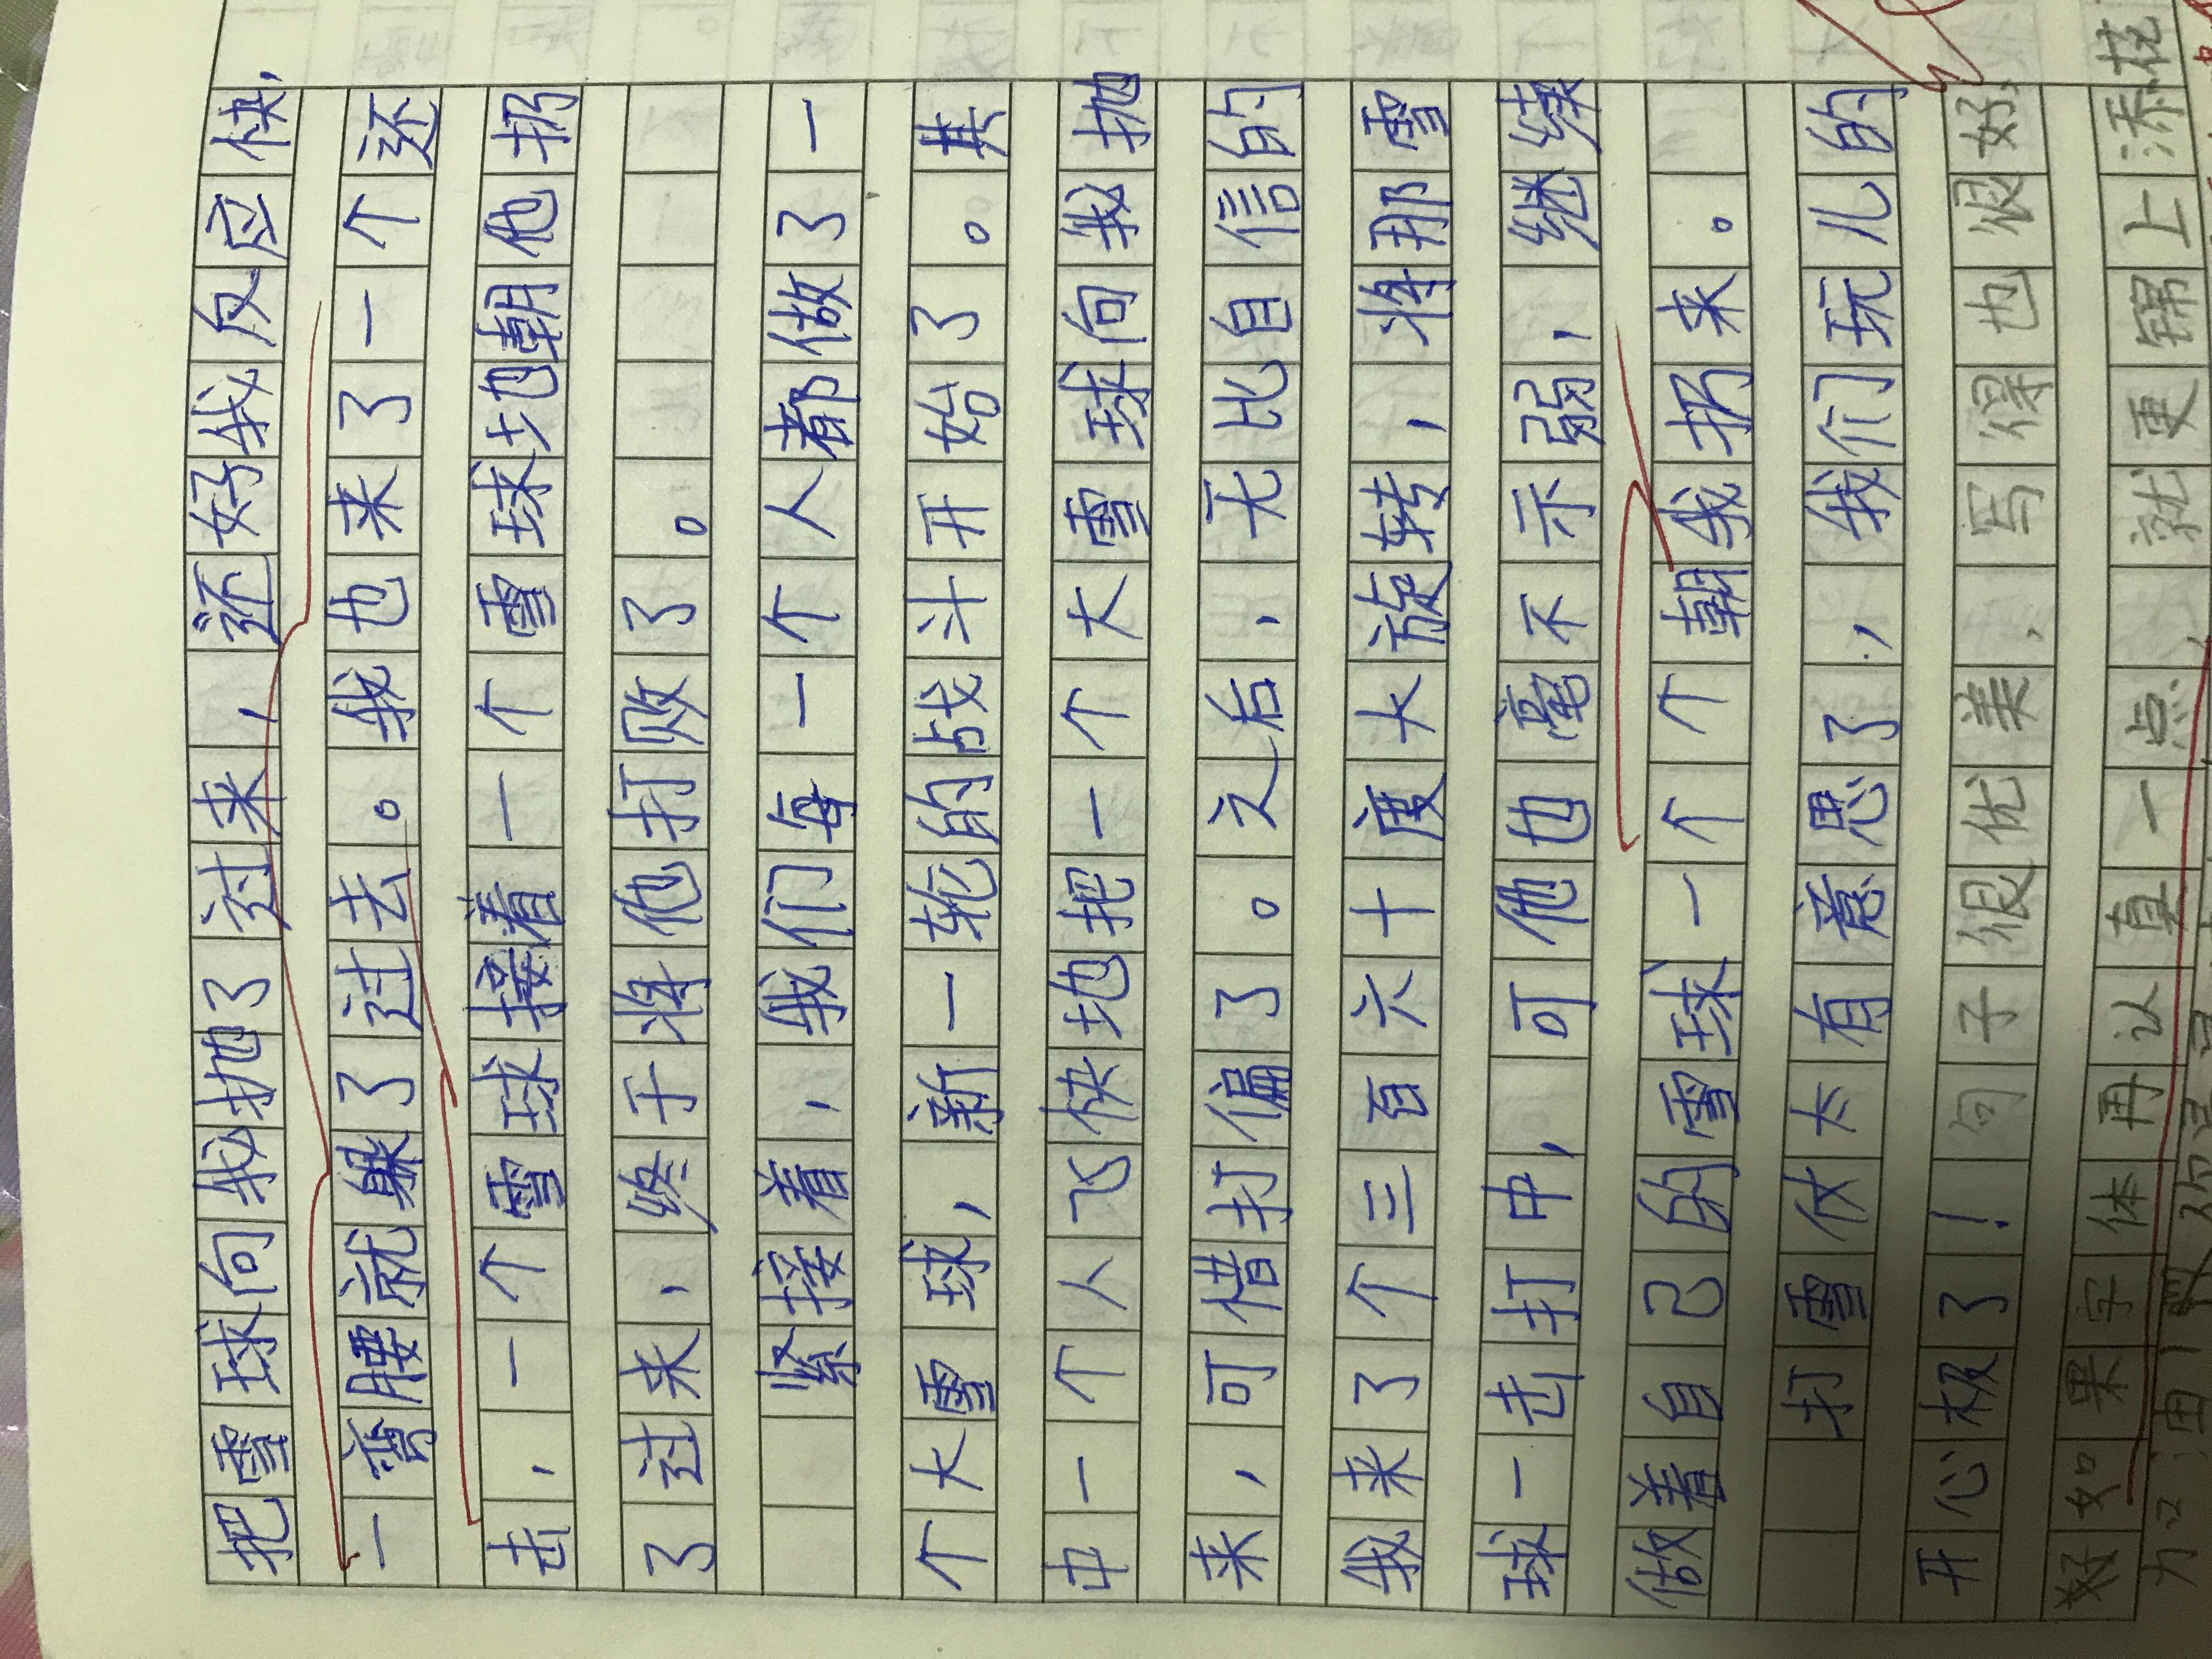 把雪球向我抛了过来，还好我反应快，
一弯腰就躲了过去。我也来了一个还
击，一个雪球接着一个雪球地朝他扔
了过来，终于将他打败了。
紧接着，我们每一个人都做了一
个大雪球，新一轮的战斗开始了。其
中一个人飞快地把一个大雪球向我抛
来，可惜打偏了。之后，无比自信的
我来了个三百六十度大旋转，将那雪
球一击打中，可他也毫不示弱，继续
做着自己的雪球一个个朝我扔来。
打雪仗太有意思了，我们玩儿的
开心极了！句子很优美，写得也很好，
如果字体再认真一点，就更锦上添花
加油！